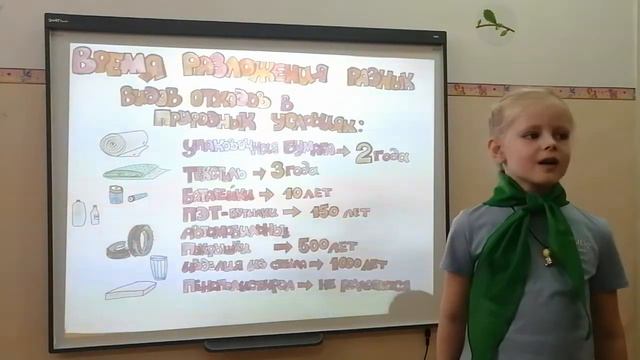 ВРЕМЯ РАЗЛОЖЕНИЯ РАЗНЫХ
ВИДОВ ОТХОДОВ В
ПРИРОДНЫХ УСЛОВИЯХ:
УПАКОВОЧНАЯ БУМАГА → 2 ГОДА
ТЕКСТИЛЬ → 3 ГОДА
БАТАРЕЙКИ → 10 ЛЕТ
ПЭТ-БУТЫЛКИ → 150 ЛЕТ
АВТОМОБИЛЬНЫЕ
ПОКРЫШКИ → 500 ЛЕТ
ИЗДЕЛИЯ ИЗ СТЕКЛА → 1000 ЛЕТ
ПЕНОПОЛИСТИРОЛ → НЕ РАЗЛАГАЕТСЯ